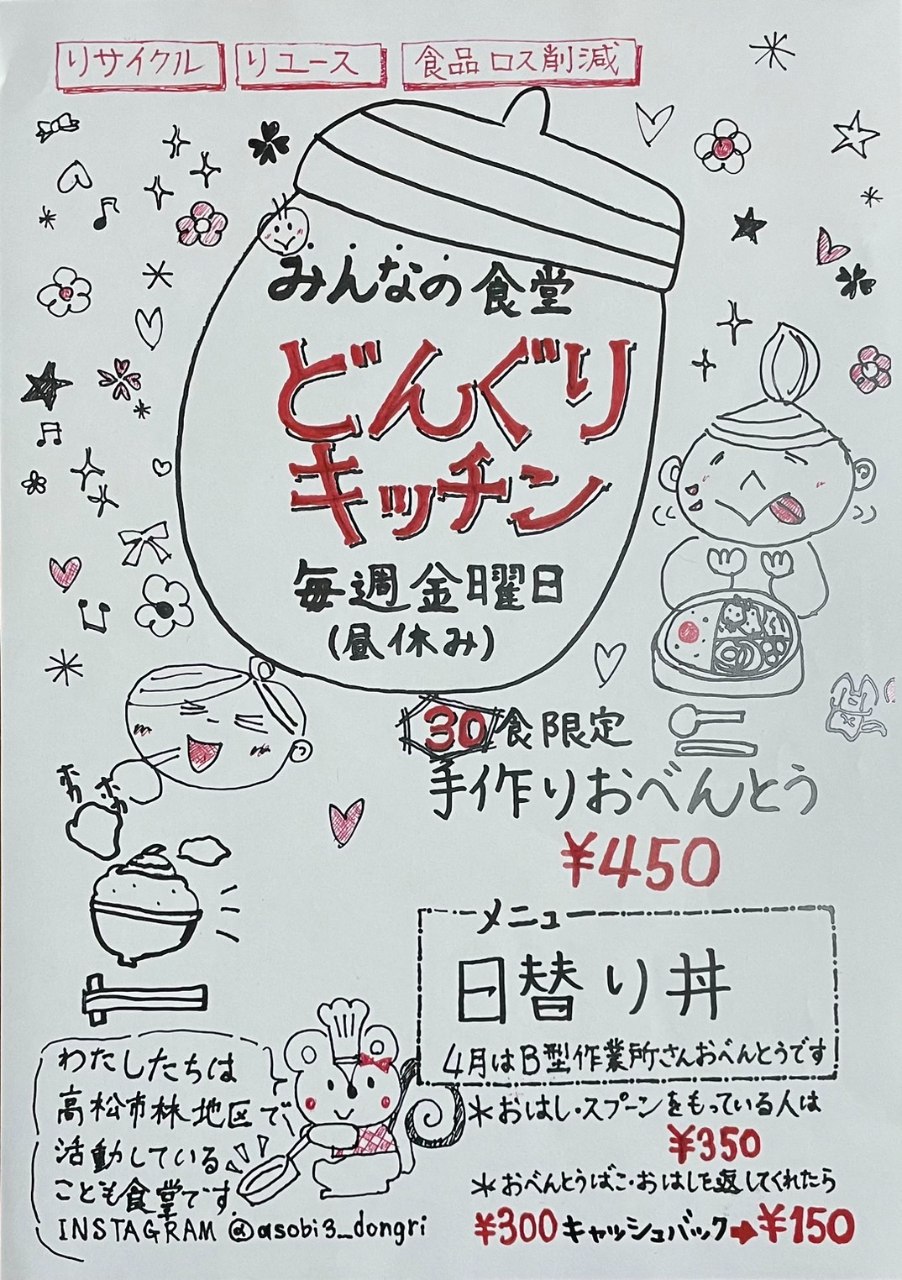 リサイクル
リユース
食品ロス削減
みんなの食堂
どんぐり
キッチン
毎週金曜日
(昼休み)
30食限定
手作りおべんとう
¥450
ホカ
ホカ
メニュー
日替り丼
4月はB型作業所さんおべんとうです
＊おはし・スプーンをもっている人は
¥350
＊おべんとうばこ・おはしを返してくれたら
¥300キャッシュバック➡¥150
わたしたちは
高松市林地区で
活動している
こども食堂です.
INSTAGRAM @asobi3_dongri